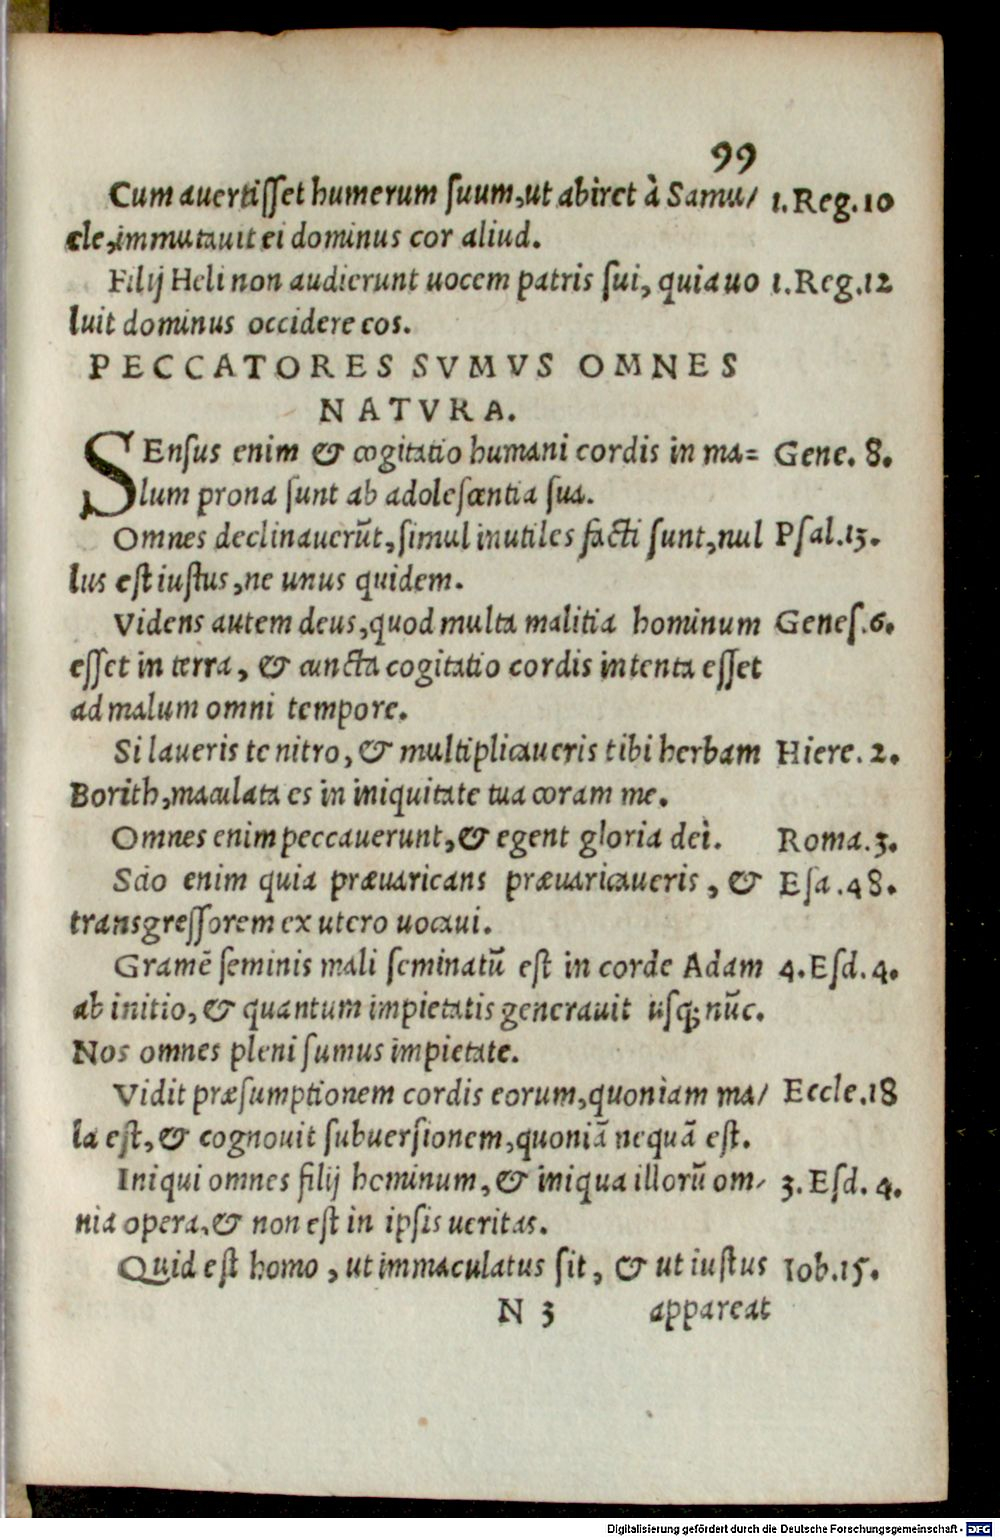 99
Cum auertiſſet humerum ſuum, ut abiret à Samu/ 1. Reg. 10
ele, immutauit ei dominus cor aliud.
Filij Heli non audierunt uocem patris ſui, quia uo 1. Reg. 12
luit dominus occidere eos.
PECCATORES SVMVS OMNES
NATVRA.
SEnſus enim & cogitatio humani cordis in ma= Gene. 8.
lum prona ſunt ab adoleſcentia ſua.
Omnes declinauerūt, ſimul inutiles facti ſunt, nul Pſal. 13.
lus eſt iuſtus, ne unus quidem.
Videns autem deus, quod multa malitia hominum Geneſ. 6.
eſſet in terra, & cuncta cogitatio cordis intenta eſſet
ad malum omni tempore.
Si laueris te nitro, & multiplicaueris tibi herbam Hiere. 2.
Borith, maculata es in iniquitate tua coram me.
Omnes enim peccauerunt, & egent gloria dei. Roma. 3.
Scio enim quia præuaricans præuaricaueris, & Eſa. 48.
transgreſſorem ex utero uocaui.
Gramē ſeminis mali ſeminatū eſt in corde Adam 4. Eſd. 4.
ab initio, & quantum impietatis generauit uſq; nūc.
Nos omnes pleni ſumus impietate.
Vidit præſumptionem cordis eorum, quoniam ma/ Eccle. 18
la eſt, & cognouit ſubuerſionem, quoniā nequā eſt.
Iniqui omnes filij hominum, & iniqua illorū om/ 3. Eſd. 4.
nia opera, & non eſt in ipſis ueritas.
Quid eſt homo, ut immaculatus ſit, & ut iuſtus Iob. 15.
N 3 appareat
Digitalisierung gefördert durch die Deutsche Forschungsgemeinschaft - DFG